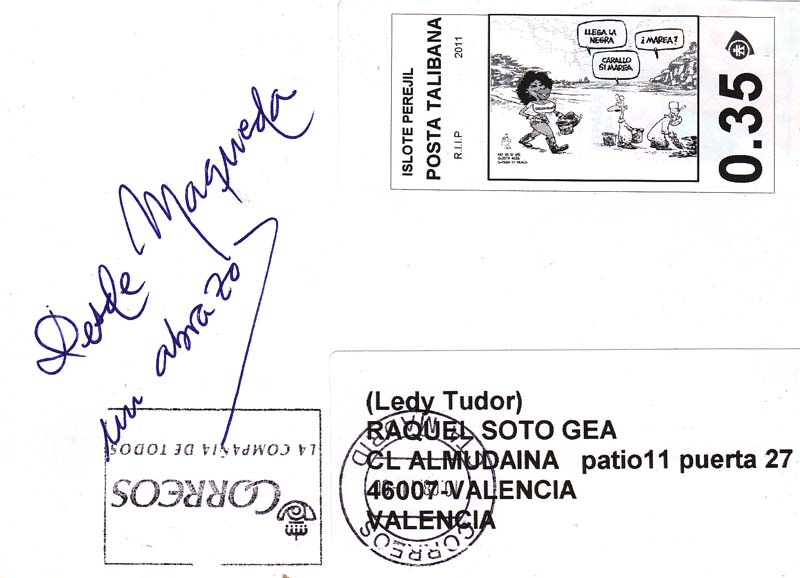 ISLOTE PEREJIL
POSTA TALIBANA
R.I.P
2011
LLEGA LA
NEGRA
¿MAREA?
CARALLO
SI MAREA
0.35
Desde Maqueda
un abrazo
(Ledy Tudor)
RAQUEL SOTO GEA
CL ALMUDAINA patio11 puerta 27
46007-VALENCIA
VALENCIA
CORREOS
LA COMPAÑIA DE TODOS
CORREOS